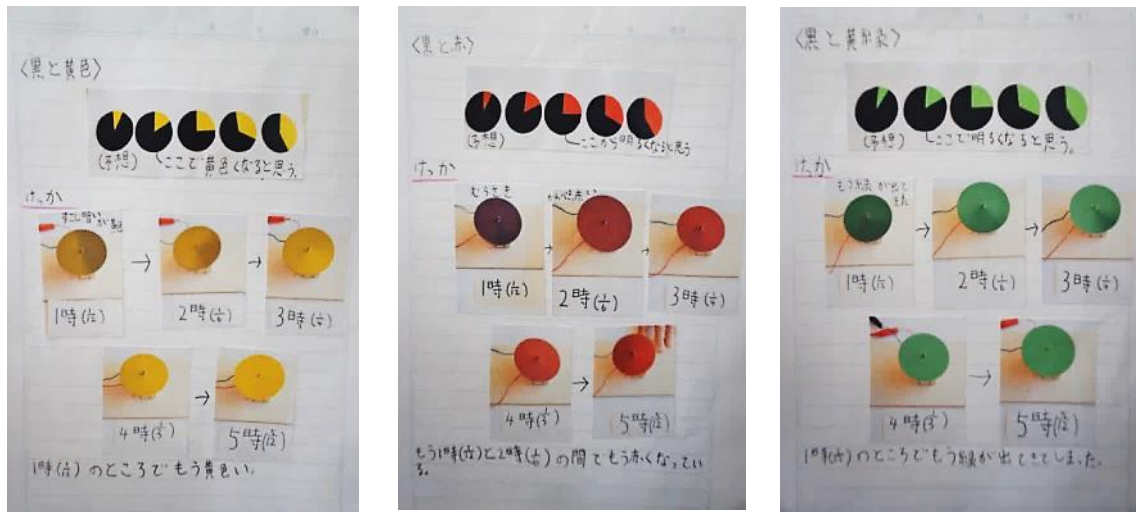 〈黒と黄色〉
(予想)
ここで黄色くなると思う。
けっか
すこし暗いが黄色
1時(1/12)
→
2時(1/6)
→
3時(1/4)
4時(1/3)
→
5時(5/12)
1時(1/12)のところでもう黄色い。
〈黒と赤〉
(予想)
ここから明るくなると思う
けっか
むらさき
かんぺき赤い
1時(1/12)
→
2時(1/6)
→
3時(1/4)
4時(1/3)
→
5時(5/12)
もう1時(1/12)と2時(1/6)の間でもう赤くなってい
る。
〈黒と黄緑〉
(予想)
ここで明るくなると思う。
けっか
もう緑が出て
きた
1時(1/12)
→
2時(1/6)
→
3時(1/4)
4時(1/3)
→
5時(5/12)
1時(1/12)のところでもう緑が出てきてしまった。